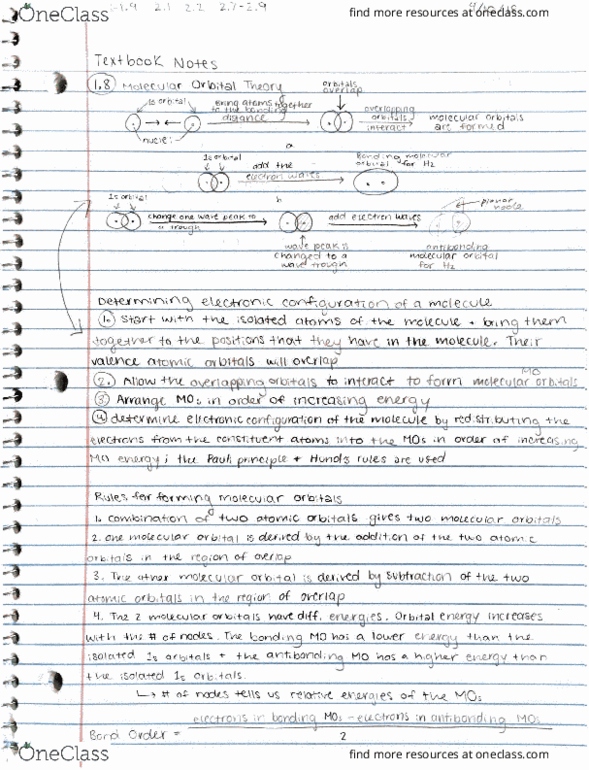 OneClass
-1.9 2.1 2.2 2.7-2.9
find more resources at oneclass.com
Textbook Notes
1.8 Molecular Orbital Theory
orbitals overlap
1s orbital
Bring atoms together to the bonding distance
overlapping orbitals interact
molecular orbitals are formed
nuclei
a
1s orbital
add the electron waves
Bonding molecular orbital for H2
b
1s orbital
change one wave peak to a trough
add electron waves
planar node
wave peak is changed to a wave trough
antibonding molecular orbital for H2
Determining electronic configuration of a molecule
1. Start with the isolated atoms of the molecule + bring them
together to the positions that they have in the molecule. Their
valence atomic orbitals will overlap
MO
2. Allow the overlapping orbitals to interact to form molecular orbitals
3 Arrange MOs in order of increasing energy
4 determine electronic configuration of the molecule by redistributing the
electrons from the constituent atoms into the MOs in order of increasing
MO energy; the Pauli principle + Hund's rules are used
Rules for forming molecular orbitals
1. combination of two atomic orbitals gives two molecular orbitals
2. one molecular orbital is derived by the addition of the two atomic
orbitals in the region of overlap
3. The other molecular orbital is derived by subtraction of the two
atomic orbitals in the region of overlap
4. The 2 molecular orbitals have diff. energies. Orbital energy increases
with the # of nodes. The bonding MO has a lower energy than the
isolated 1s orbitals + the antibonding MO has a higher energy than
the isolated 1s orbitals.
↳ # of nodes tells us relative energies of the MOs
electrons in bonding MOs - electrons in antibonding MOs
Bond Order =
2
OneClass
find more resources at oneclass.com